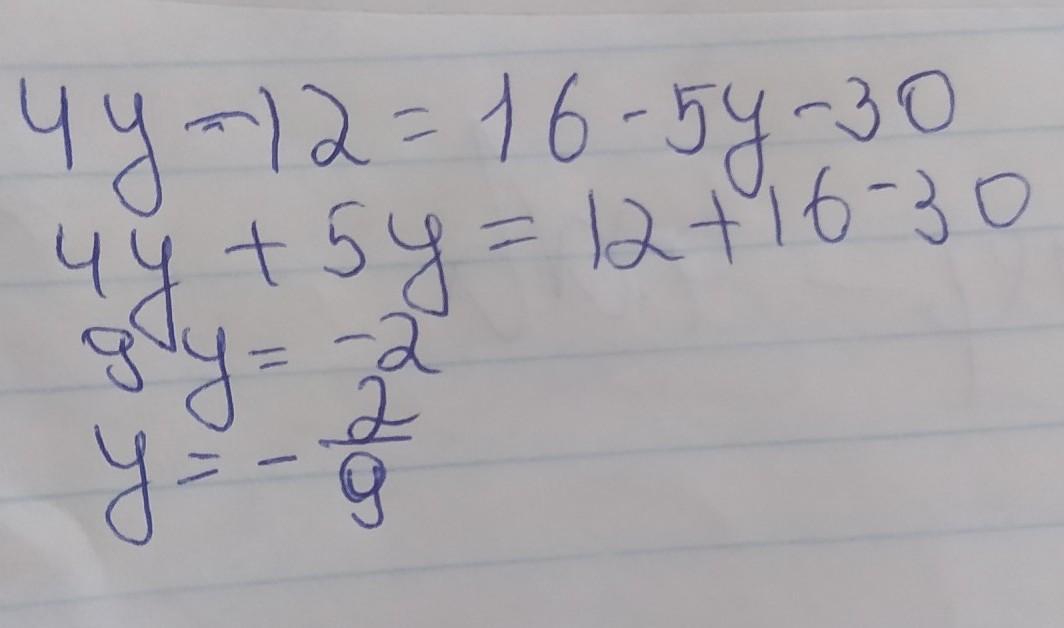 4y - 12 = 16 - 5y - 30
4y + 5y = 12 + 16 - 30
9y = -2
y = -2/9